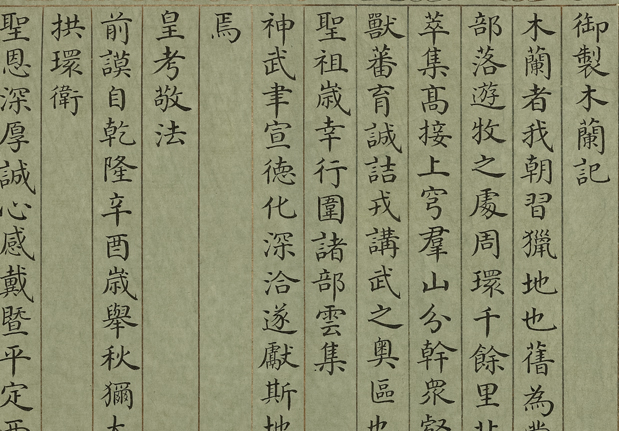 御製木蘭記
木蘭者我朝習獵地也舊為
部落遊牧之處周環千餘里
萃集髙接上穹羣山分幹衆
獸蕃育誠詰戎講武之奥區也
聖祖歳幸行圍諸部雲集
神武聿宣德化深洽遂獻斯地
焉
皇考敬法
前謨自乾隆辛酉歳舉秋獮
拱環衛
聖恩深厚誠心感戴暨平定